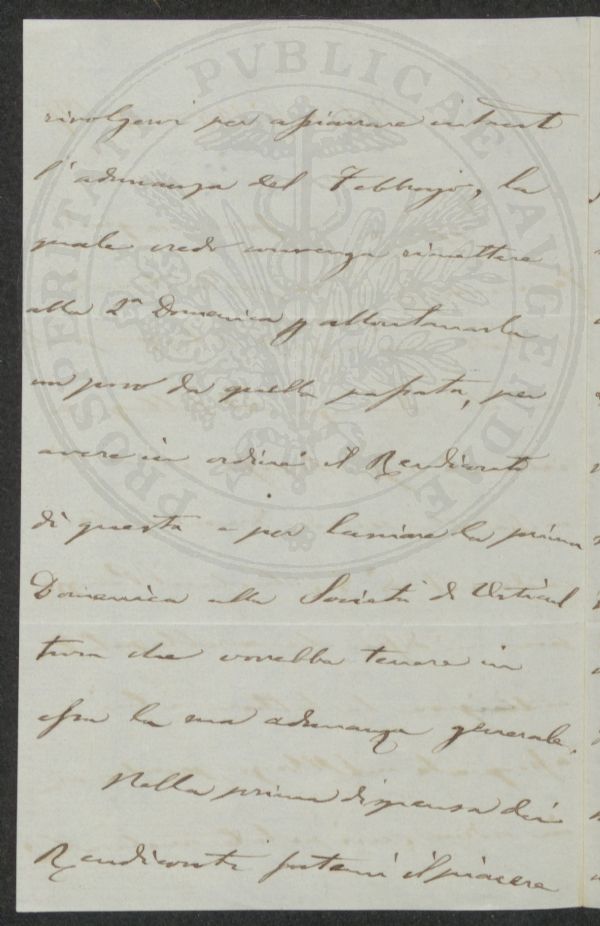 PROSPERITATI PVBLICAE AVGENDAE
rivolgervi per appianare
l'adunanza del Febbrajo, la
quale credo convenga rimettere
alla 2ª Domenica p allontanarla
un poco da quella passata, per
avere in ordine il Rendiconto
di questa e per lasciare la prima
Domenica alla Società d'Orticul
tura che vorrebbe tenere in
essa la sua adunanza generale.
Nella prima dispensa dei
Rendiconti fatemi il piacere